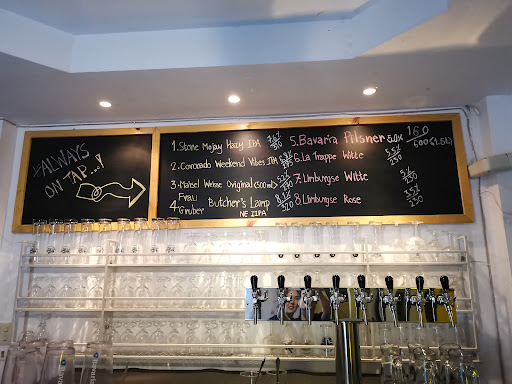 #ALWAYS
ON TAP...!
1. Stone Mojay Hazy IPA
2. Coronado Weekend Vibes IPA
3. Maisel Weisse Original (500ml)
4. Frau Gruber Butcher's Lamp
NE IIPA
5. Bavaria Pilsner 5.0% 160
6. La Trappe Witte
230
7. Limburgse Witte
5%
230
8. Limburgse Rose
3.5%
230